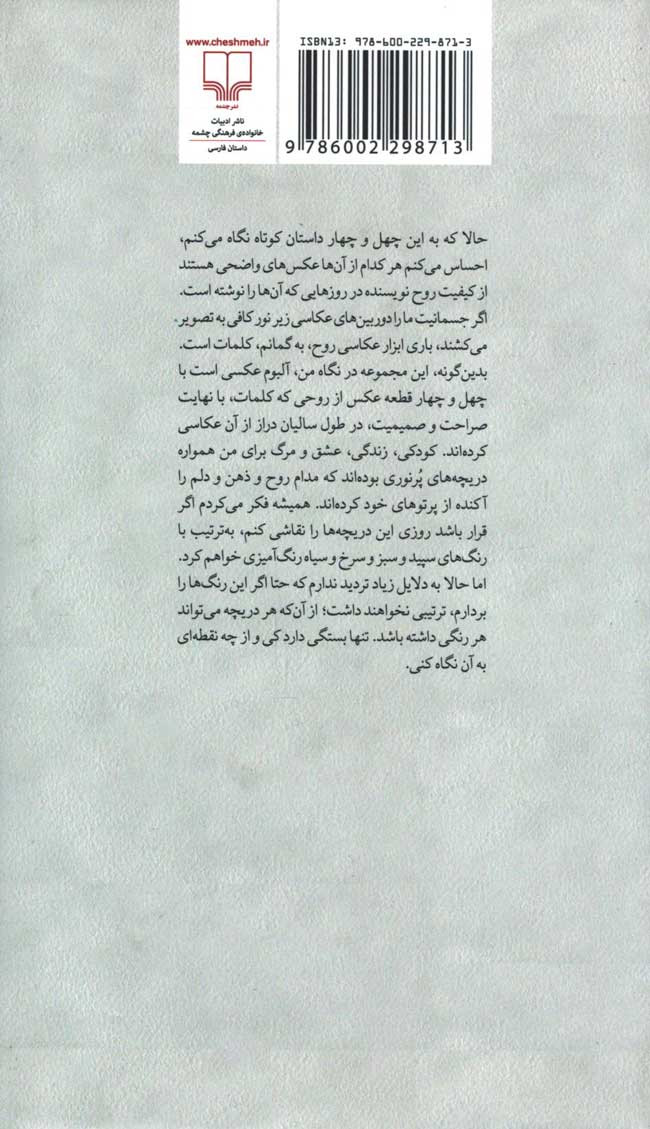 www.cheshmeh.ir
نشرچشمه
ناشر ادبیات
خانواده‌ی فرهنگی چشمه
داستان فارسی
ISBN13: 978-600-229-871-3
9 786002 298713
حالا که به این چهل و چهار داستان کوتاه نگاه می‌کنم،
احساس می‌کنم هر کدام از آن‌ها عکس‌های واضحی هستند
از کیفیت روح نویسنده در روزهایی که آن‌ها را نوشته است.
اگر جسمانیت ما را دوربین‌های عکاسی زیر نور کافی به تصویر
می‌کشند، باری ابزار عکاسی روح، به گمانم، کلمات است.
بدین‌گونه، این مجموعه در نگاه من، آلبوم عکسی است با
چهل و چهار قطعه عکس از روحی که کلمات، با نهایت
صراحت و صمیمیت، در طول سالیان دراز از آن عکاسی
کرده‌اند. کودکی، زندگی، عشق و مرگ برای من همواره
دریچه‌های پُرنوری بوده‌اند که مدام روح و ذهن و دلم را
آکنده از پرتوهای خود کرده‌اند. همیشه فکر می‌کردم اگر
قرار باشد روزی این دریچه‌ها را نقاشی کنم، به‌ترتیب با
رنگ‌های سپید و سبز و سرخ و سیاه رنگ‌آمیزی خواهم کرد.
اما حالا به دلایل زیاد تردید ندارم که حتا اگر این رنگ‌ها را
بردارم، ترتیبی نخواهند داشت؛ از آن‌که هر دریچه می‌تواند
هر رنگی داشته باشد. تنها بستگی دارد کی و از چه نقطه‌ای
به آن نگاه کنی.